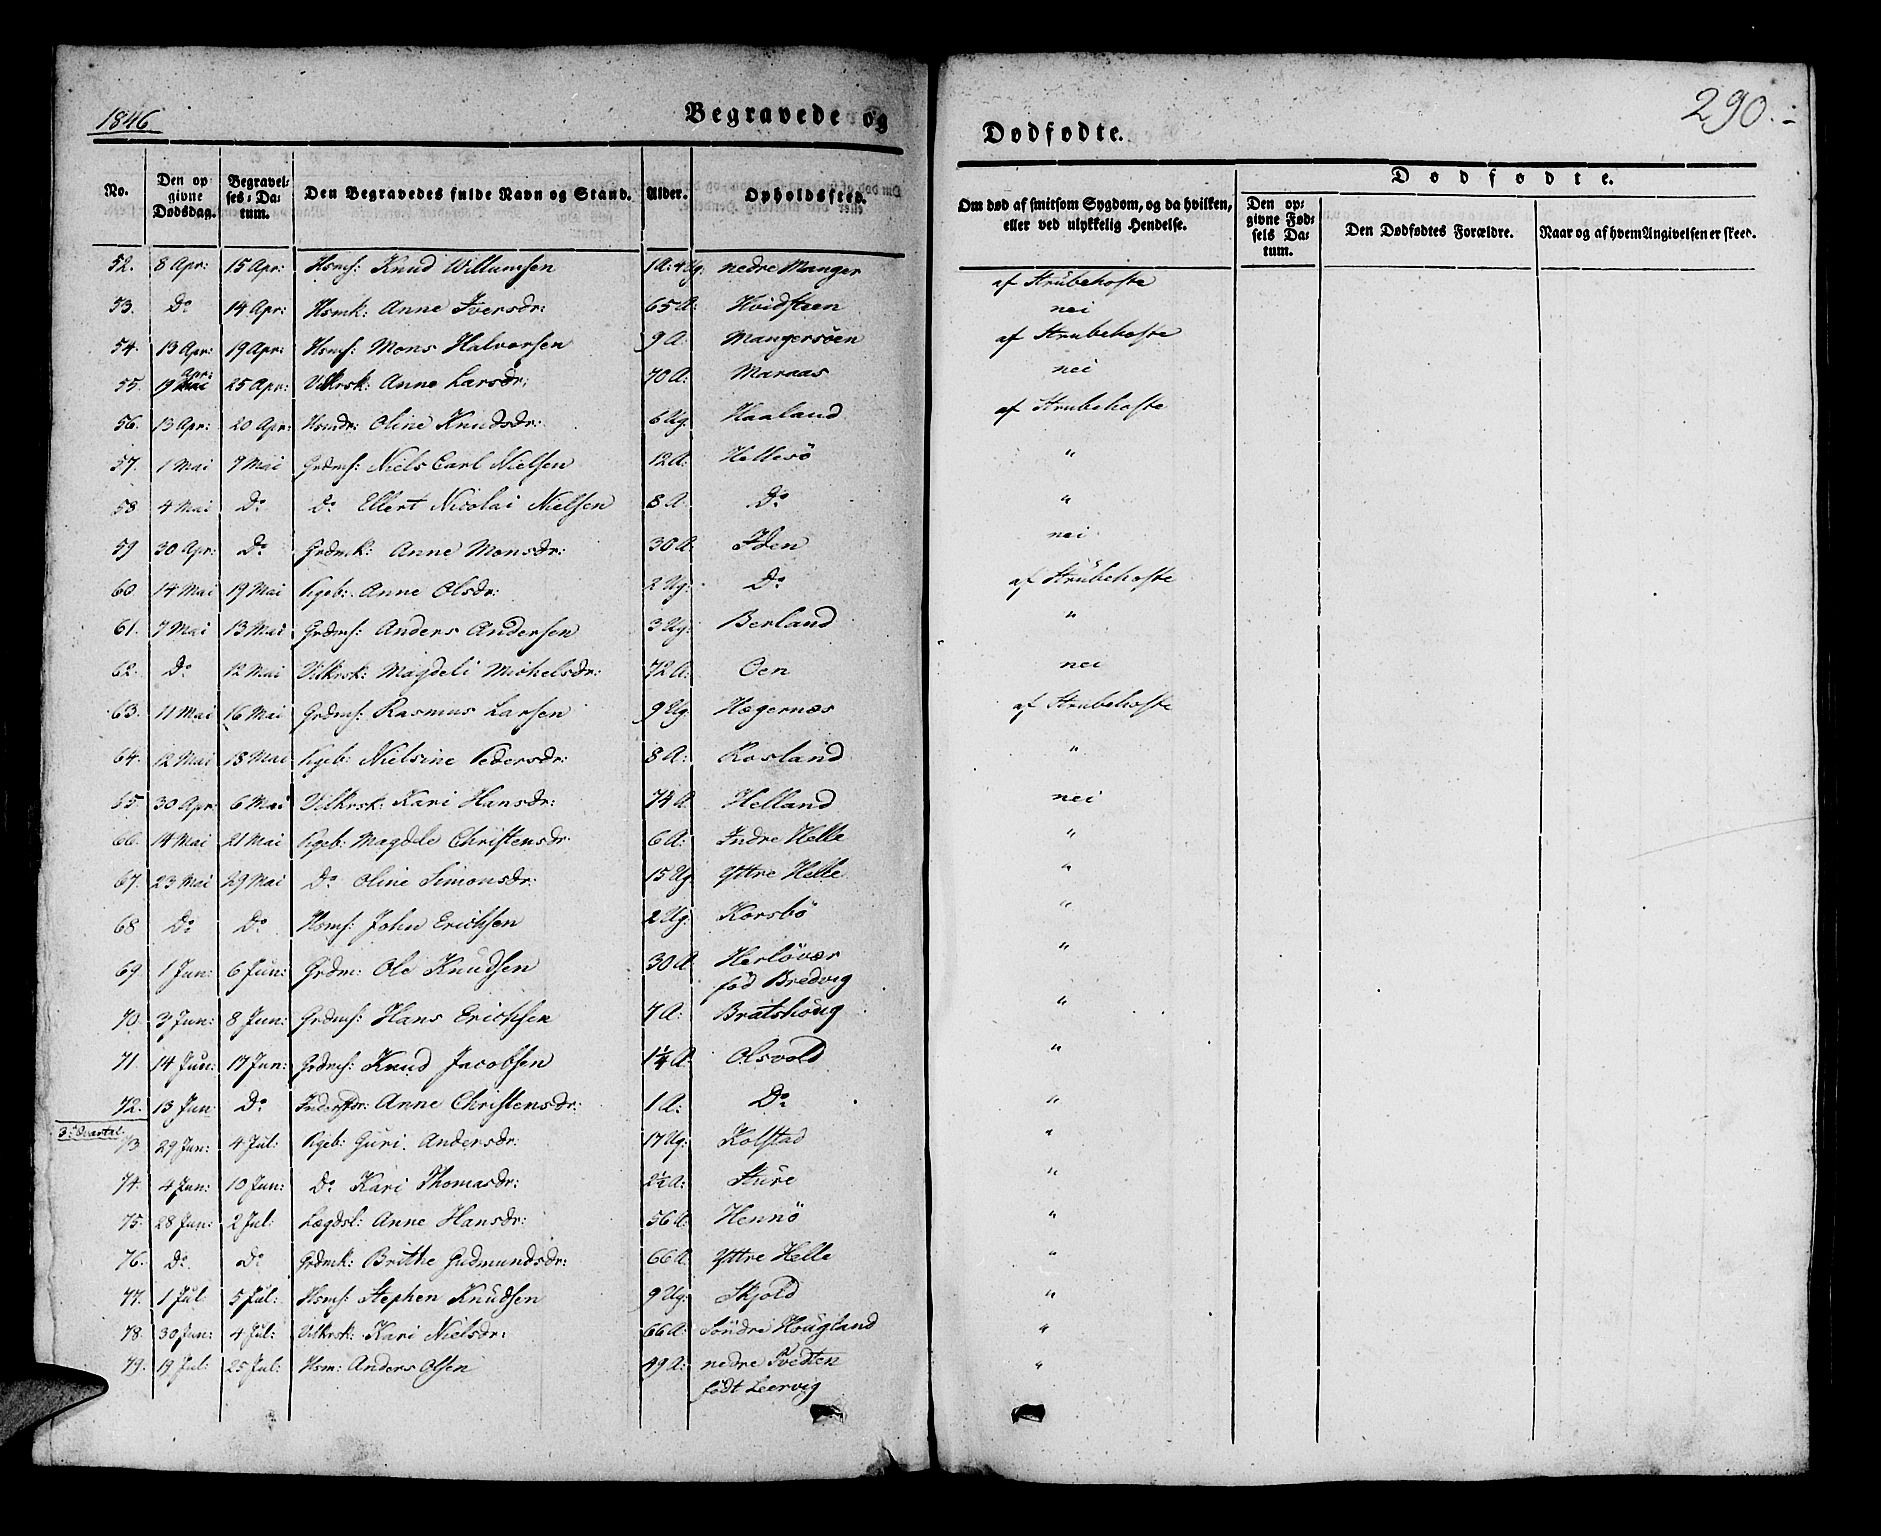 1846
Begravede og
Dødfødte.
290.
No.
Den opgivne Dødsdag.
Begravelses-Datum.
Den Begravedes fulde Navn og Stand.
Alder.
Opholdssted.
Om død af smitsom Sygdom, og da hvilken, eller ved ulykkelig Hendelse.
Dødfødte.
Den opgivne Fødsels Datum.
Den Dødfødtes Forældre.
Naar og af hvem Angivelsen er skeed.
52. 8 Apr: 15 Apr: Hsmf: Knud Willumsen 1 A: 4 Ug: nedre Manger af Strubehoste
53. Do 14 Apr: Hsmk: Anne Iversdr: 65 A: Hvidsteen nei
54. 13 Apr: 19 Apr: Hsmf: Mons Halvorsen 9 A. Mangersøen af Strubehoste
55. 19 Apr: 25 Apr: Vilkrsk: Anne Larsdr: 70 A: Maraas nei
56. 13 Apr: 20 Apr: Hsmdr: Oline Knudsdr: 6 Ug. Haaland af Strubehoste
57. 1 Mai 7 Mai Grdmf: Niels Carl Nielsen 12 A: Hellesö "
58 4 Mai Do Do Ellert Nicolai Nielsen 8 A: Do "
59 30 Apr: Do Grdmk: Anne Monsdr: 30 A: Iden nei
60 14 Mai 19 Mai Pgeb: Anne Olsdr: 2 Ug: Do af Strubehoste
61. 7 Mai 13 Mai Grdmf: Anders Andersen 3 Ug: Berland "
62. Do 12 Mai Vilkrsk: Magdeli Michelsdr: 72 A: Oen nei
63. 11 Mai 16 Mai Grdmf: Rasmus Larsen 9 Ug Hægernæs af Strubehoste
64. 12 Mai 18 Mai Pgeb: Nielsine Pedersdr: 8 A: Rosland "
65 30 Apr: 6 Mai Vilkrsk: Kari Hansdr: 74 A Helland nei
66. 14 Mai 21 Mai Pgeb: Magdle Christensdr: 6 A: Indre Helle "
67. 23 Mai 29 Mai Do Oline Simonsdr: 15 Ug Yttre Helle "
68 Do Do Hsmf: John Erichsen 2 Ug: Korsbö "
69 1 Jun: 6 Jun: Grdm: Ole Knudsen 30 A Herlövær "
fød Bredvig
70. 3 Jun: 8 Jun: Grdmf: Hans Erichsen 7 A: Bratshoug "
71. 14 Jun: 17 Jun: Grdmf: Knud Jacobsen 1 1/4 A Olsvold "
72. 13 Jun Do Anne Christensdr: 1 A: Do "
3. Qvartal.
73 29 Jun: 4 Jul: Pgeb: Guri Andersdr: 17 Ug: Kolstad "
74. 4 Jun: 10 Jun: Do Kari Thomasdr: 2 1/2 A: Sture "
75. 28 Jun: 2 Jul: Lægdsl: Anne Hansdr: 56 A Hennö "
76. Do Do Grdmk: Brithe Gudmundsdr: 66 A: Yttre Helle "
77. 1 Jul 5 Jul: Hsmf: Stephen Knudsen 9 Ug: Skjold "
78. 30 Jun: 4 Jul: Vilkrsk: Kari Nielsdr: 66 A: Söndre Hougland "
79. 19 Jul: 25 Jul: Hsm: Anders Olsen 49 A: nedre Tvedten "
født Leervig